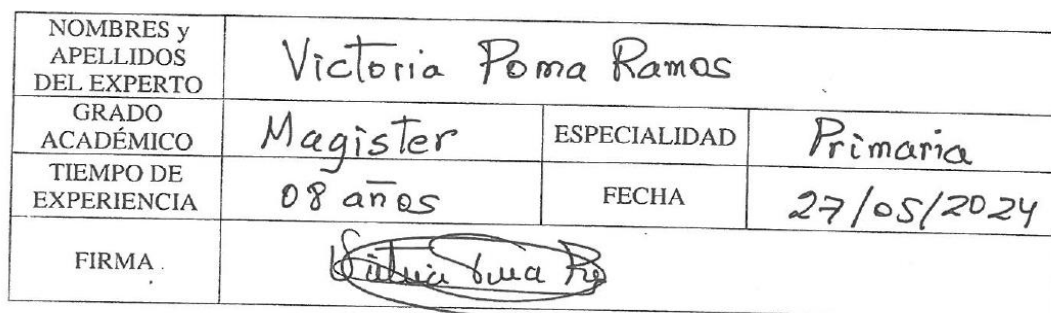 NOMBRES y
APELLIDOS
DEL EXPERTO
Victoria Poma Ramos
GRADO
ACADÉMICO
Magister
ESPECIALIDAD
Primaria
TIEMPO DE
EXPERIENCIA
08 años
FECHA
27/05/2024
FIRMA